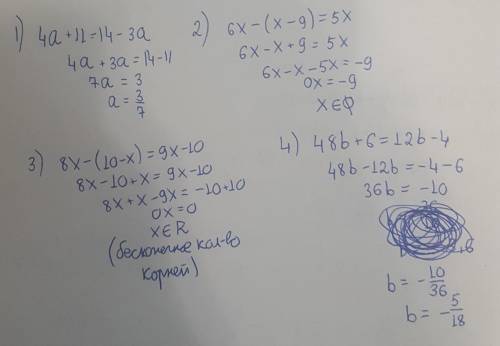 1) 4a + 11 = 14 - 3a
4a + 3a = 14 - 11
7a = 3
a = 3/7
2) 6x - (x - 9) = 5x
6x - x + 9 = 5x
6x - x - 5x = -9
0x = -9
x ∈ Ø
3) 8x - (10 - x) = 9x - 10
8x - 10 + x = 9x - 10
8x + x - 9x = -10 + 10
0x = 0
x ∈ R
(бесконечное кол-во
корней)
4) 48b + 6 = 12b - 4
48b - 12b = -4 - 6
36b = -10
b = - 10/36
b = - 5/18